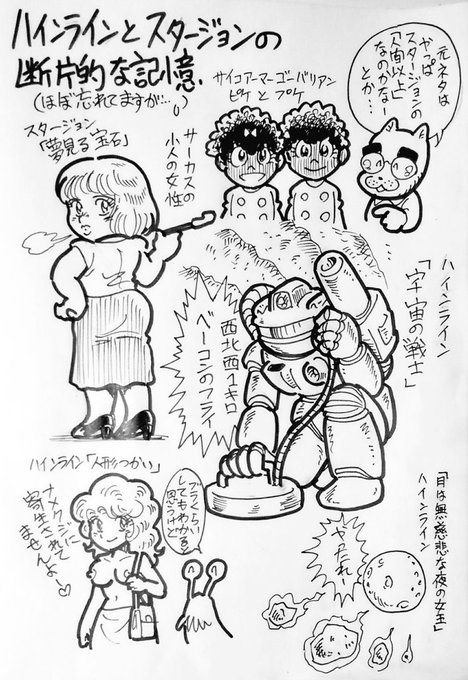 ハインラインとスタージョンの
断片的な記憶
(ほぼ忘れてますが…)
元ネタは
やっぱ
スタージョンの
「人間以上」
なのかなー
とか…
サイコアーマーゴーバリアン
ピケとプケ
スタージョン
「夢見る宝石」
サーカスの
小人の女性
ハインライン
「宇宙の戦士」
西北西1キロ
ベーコンのフライ
ハインライン「人形つかい」
してもわかると
思うけど
ナメクジに
寄生されて
ませんよー♡
「月は無慈悲な夜の女王」
ハインライン
やったれー